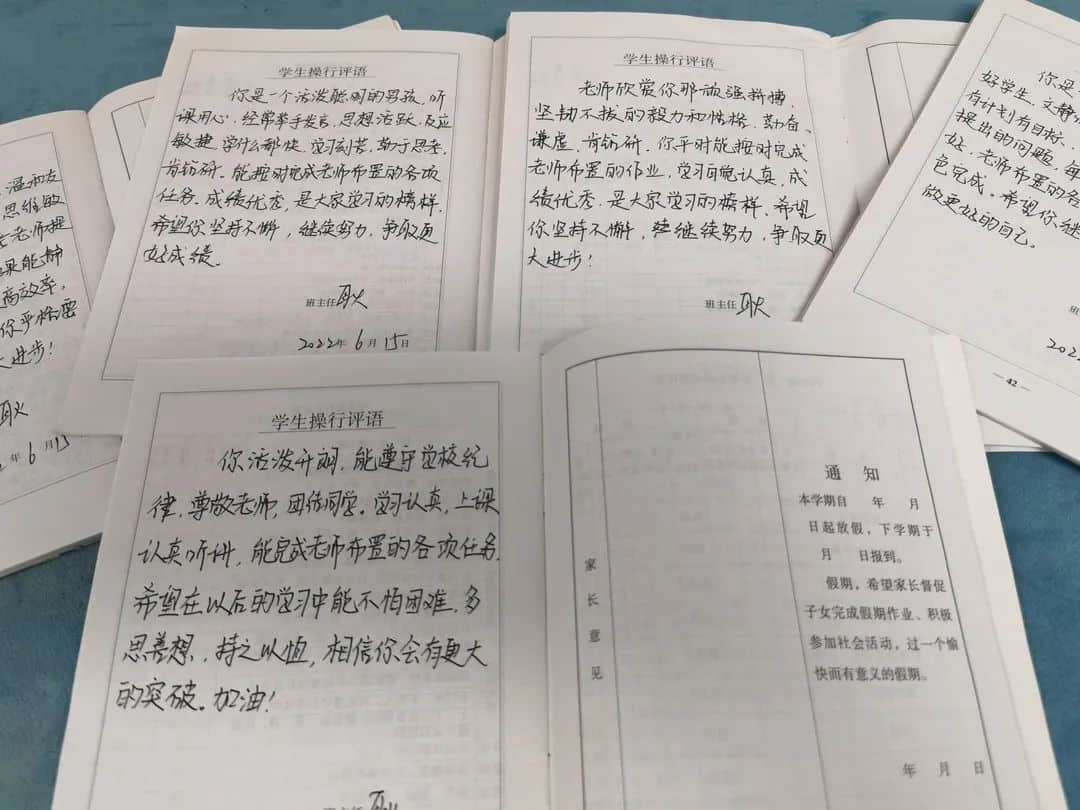 温和友
思维敏
老师提
果能静
高效率,
你严格要
大进步!
耿
年 6 月 15
学生操行评语
你是一个活泼聪明的男孩,听
课用心,经常举手发言,思想活跃,反应
敏捷,学什么都快,学习刻苦,勤于思考,
肯钻研。能按时完成老师布置的各项
任务,成绩优秀,是大家学习的榜样,
希望你坚持不懈,继续努力,争取更
好成绩。
班主任 耿
2022年 6 月 15日
学生操行评语
老师欣赏你那顽强拼搏,
坚韧不拔的毅力和性格,勤奋、
谦虚,肯钻研。你平时能按时完成
老师布置的作业,学习自觉认真,成
绩优秀,是大家学习的榜样,希望
你坚持不懈,继续努力,争取更
大进步!
班主任 耿
你是
好学生,文静,
有计划有目标、
提出的问题,每
好,老师布置的各
色完成。希望你继
做更好的自己。
班
2022
— 42 —
学生操行评语
你活泼开朗,能遵守学校纪
律,尊敬老师,团结同学。学习认真,上课
认真听讲,能完成老师布置的各项任务,
希望在以后的学习中能不怕困难,多
思善想,持之以恒,相信你会有更大
的突破。加油!
班主任 耿
家长意见
通知
本学期自 年 月
日起放假,下学期于
月 日报到。
假期,希望家长督促
子女完成假期作业、积极
参加社会活动,过一个愉
快而有意义的假期。
年 月 日